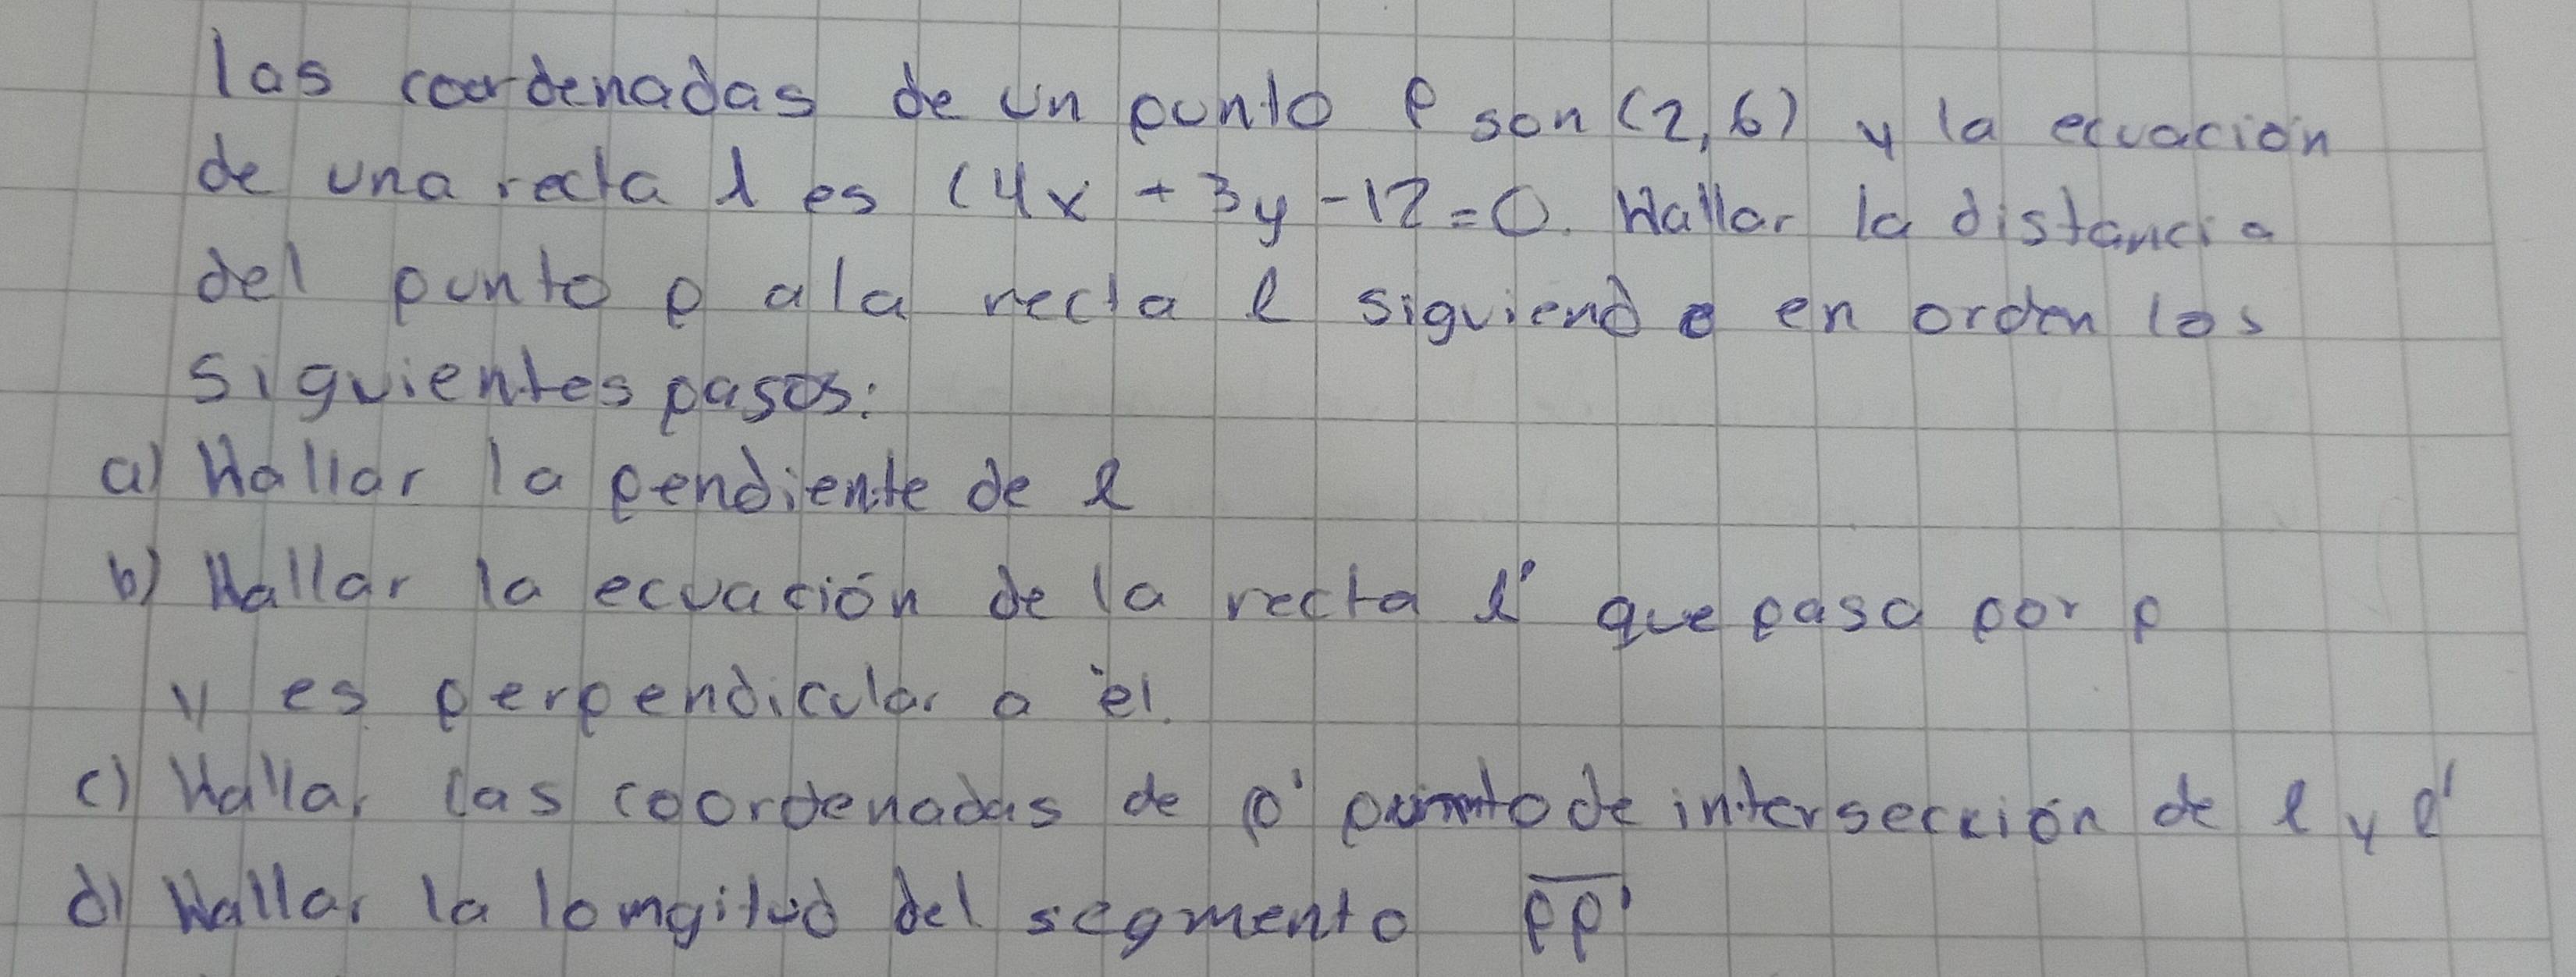 las coordenadas de un punto P son (2,6) y la ecuación
de una recta l es (4x + 3y - 12 = 0. Hallar la distancia
del punto p a la recta l siguiendo en orden los
siguientes pasos:
a) Hallar la pendiente de l
b) Hallar la ecuación de la recta l' que pasa por p
y es perpendicular a él.
c) Hallar las coordenadas de p' punto de intersección de l y l'
d) Hallar la longitud del segmento \overline{PP'}